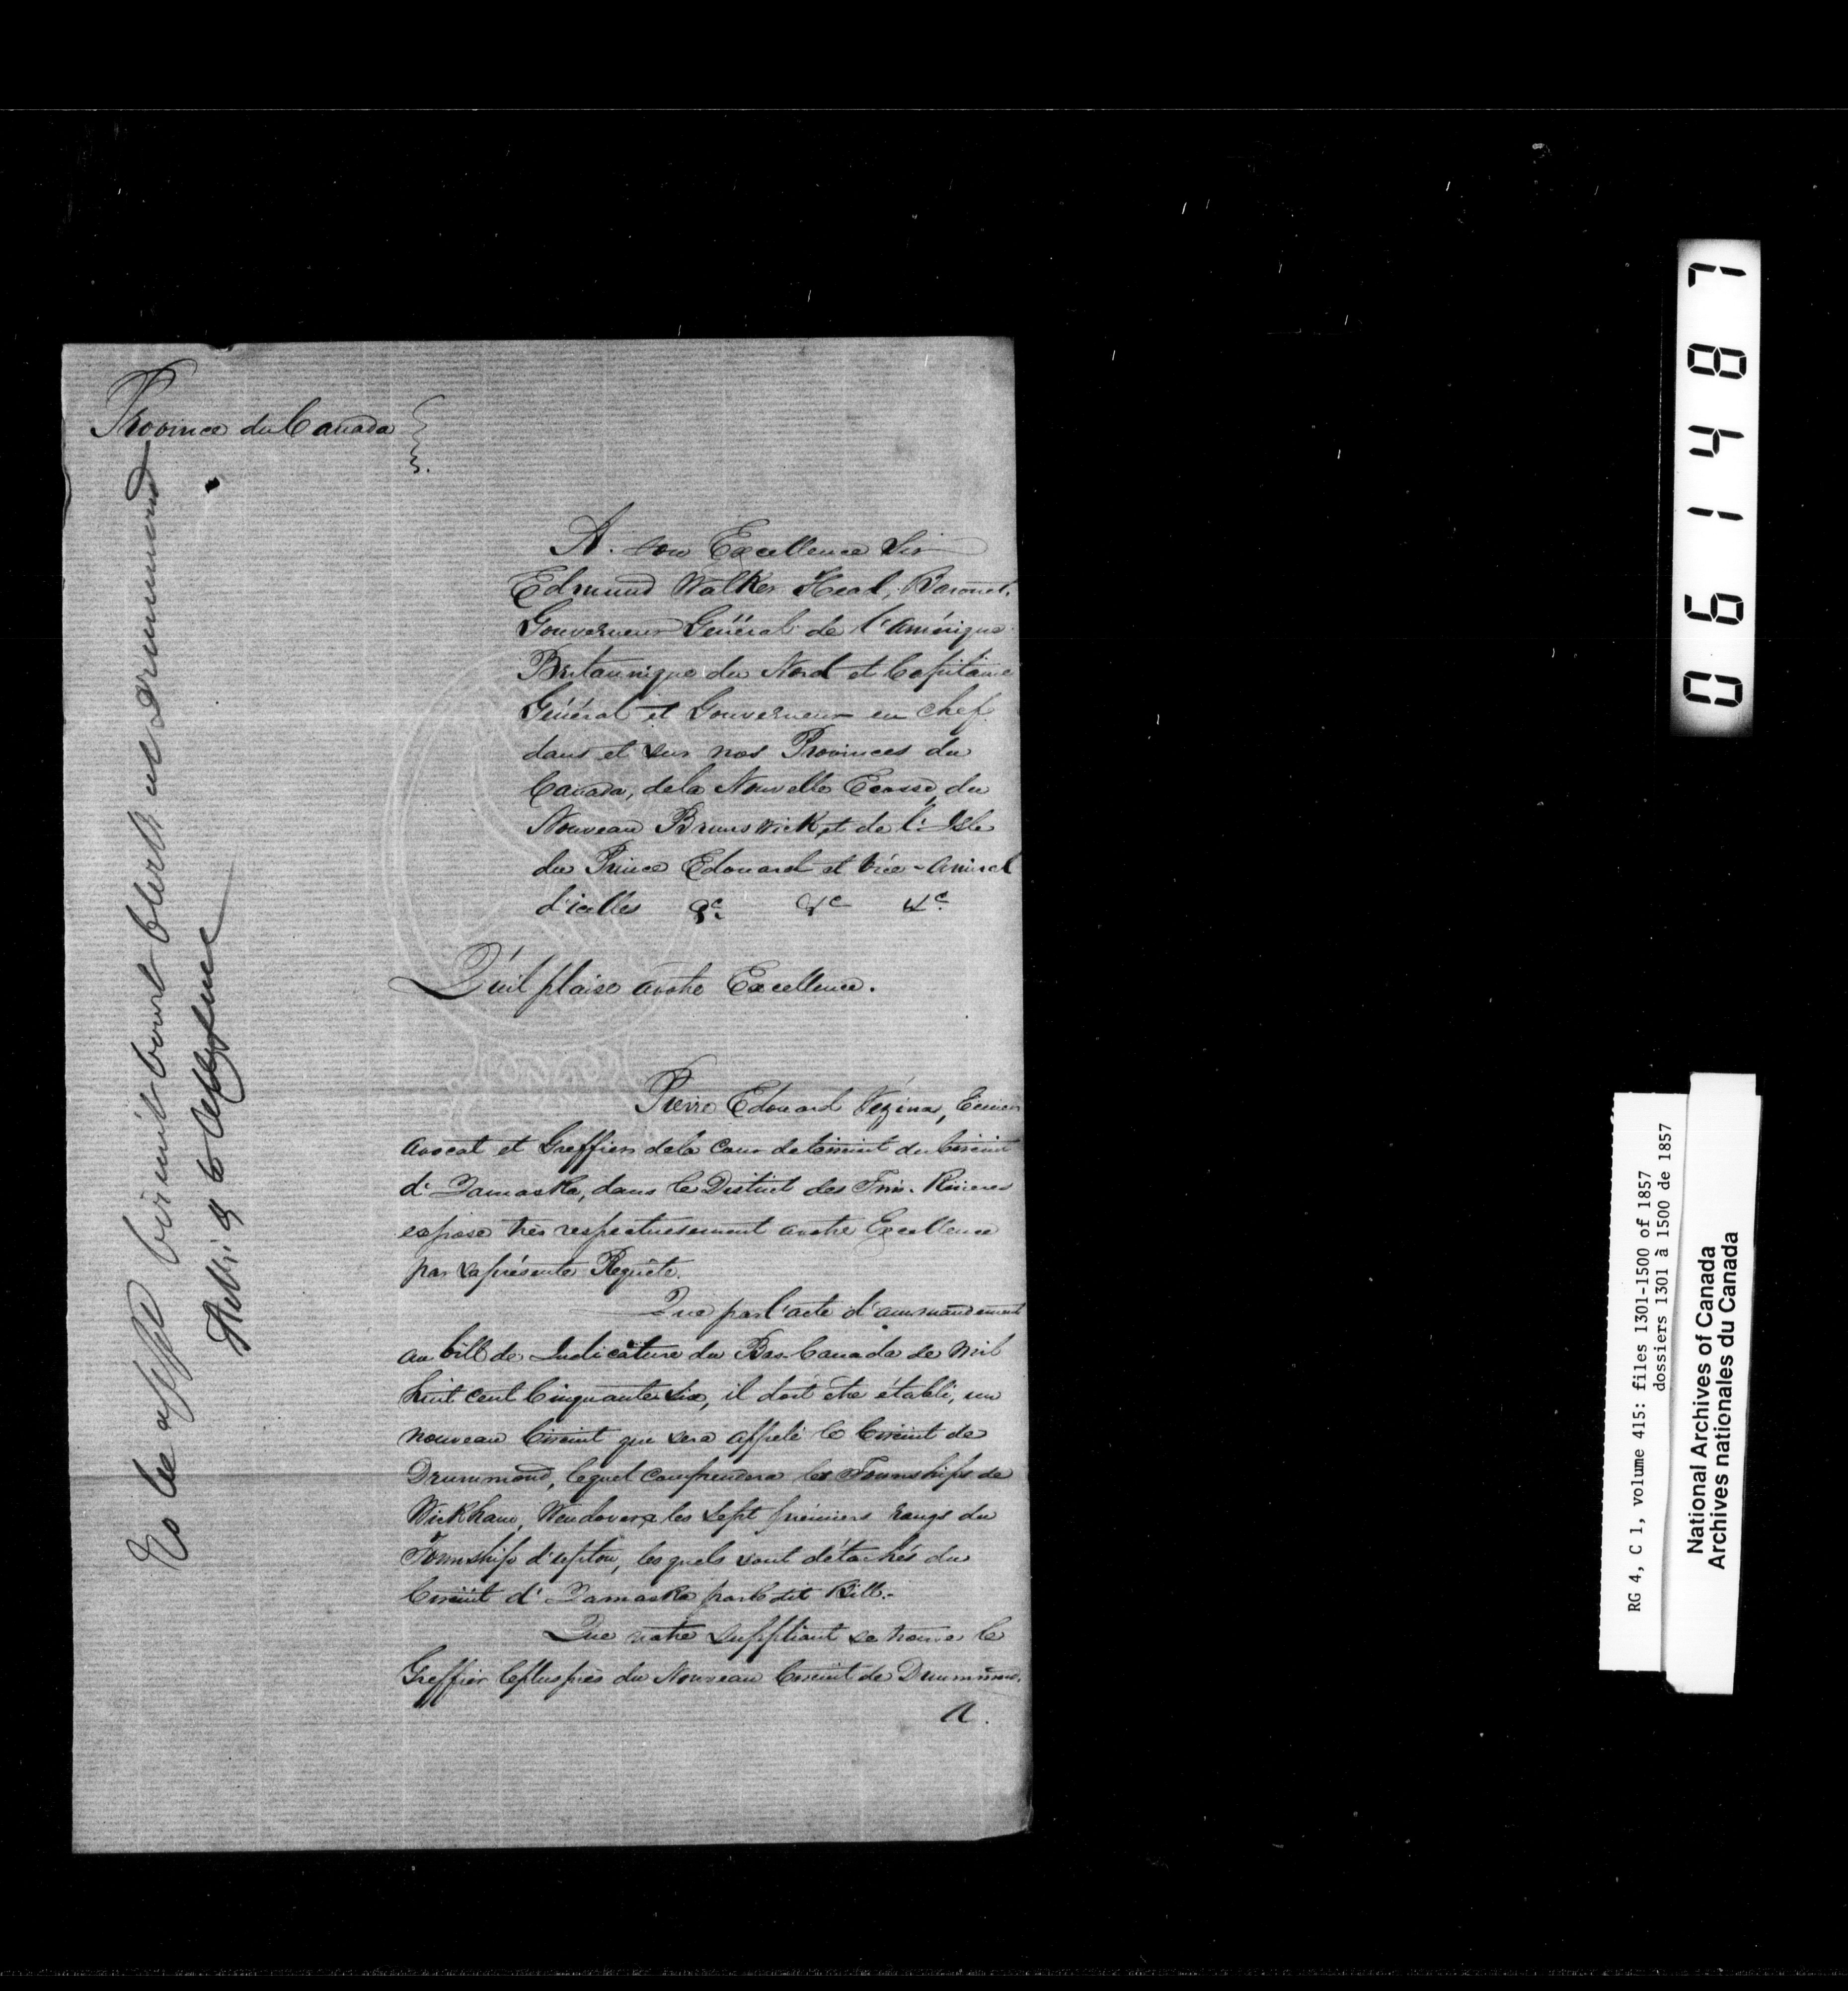 Province du Canada
A. Son Excellence Sir
Edmund Walker Head, Baronet,
Gouverneur Général de l'Amérique
Britannique du Nord et Capitaine
Général et Gouverneur en Chef
dans et sur nos Provinces du
Canada, dela Nouvelle Ecosse, du
Nouveau Brunswick, et de l'Isle
du Prince Edouard et Vice-Amiral
d'icelles &c. &c &c.
Qu'il plaise avotre Excellence.
Pierre Edouard Vézina, Ecuier
Avocat et Greffier dela Cour de Circuit du Circuit
d'Yamaska, dans le District des Trois-Rivieres
expose très respectueusement avotre Excellence
par Saprésente Requête.
Que par l'acte d'ammandement
au bill de Judicature du Bas-Canada de Mil
huit cent Cinquante Six, il doit être établi, un
nouveau Circuit qui sera appelé le Circuit de
Drummond, lequel Comprendera les Townships de
Wickham, Wendover & les Sept prémiers rangs du
Township d'upton, lesquels sont détachés du
Circuit d'Yamaska par le dit Bill.-
Que votre Suppliant se trouve le
Greffier leplus près du Nouveau Circuit de Drummond.
A.
To be appd Circuit Court Clerk at Drummond
061487
RG 4, C 1, volume 415: files 1301-1500 of 1857
dossiers 1301 à 1500 de 1857
National Archives of Canada
Archives nationales du Canada